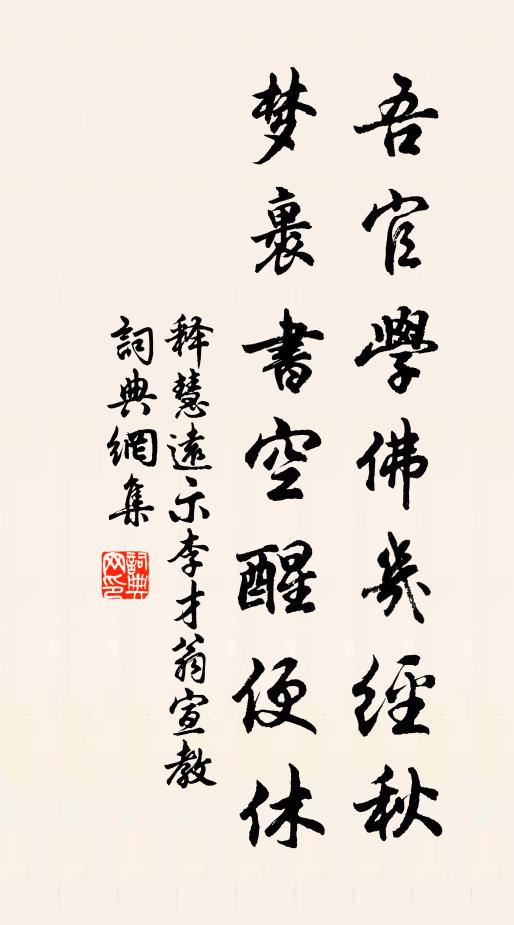 吾官學佛幾經秋
梦裏書空醒便休
释慧遠示李才翁宣教
詞典網集
詞典网印